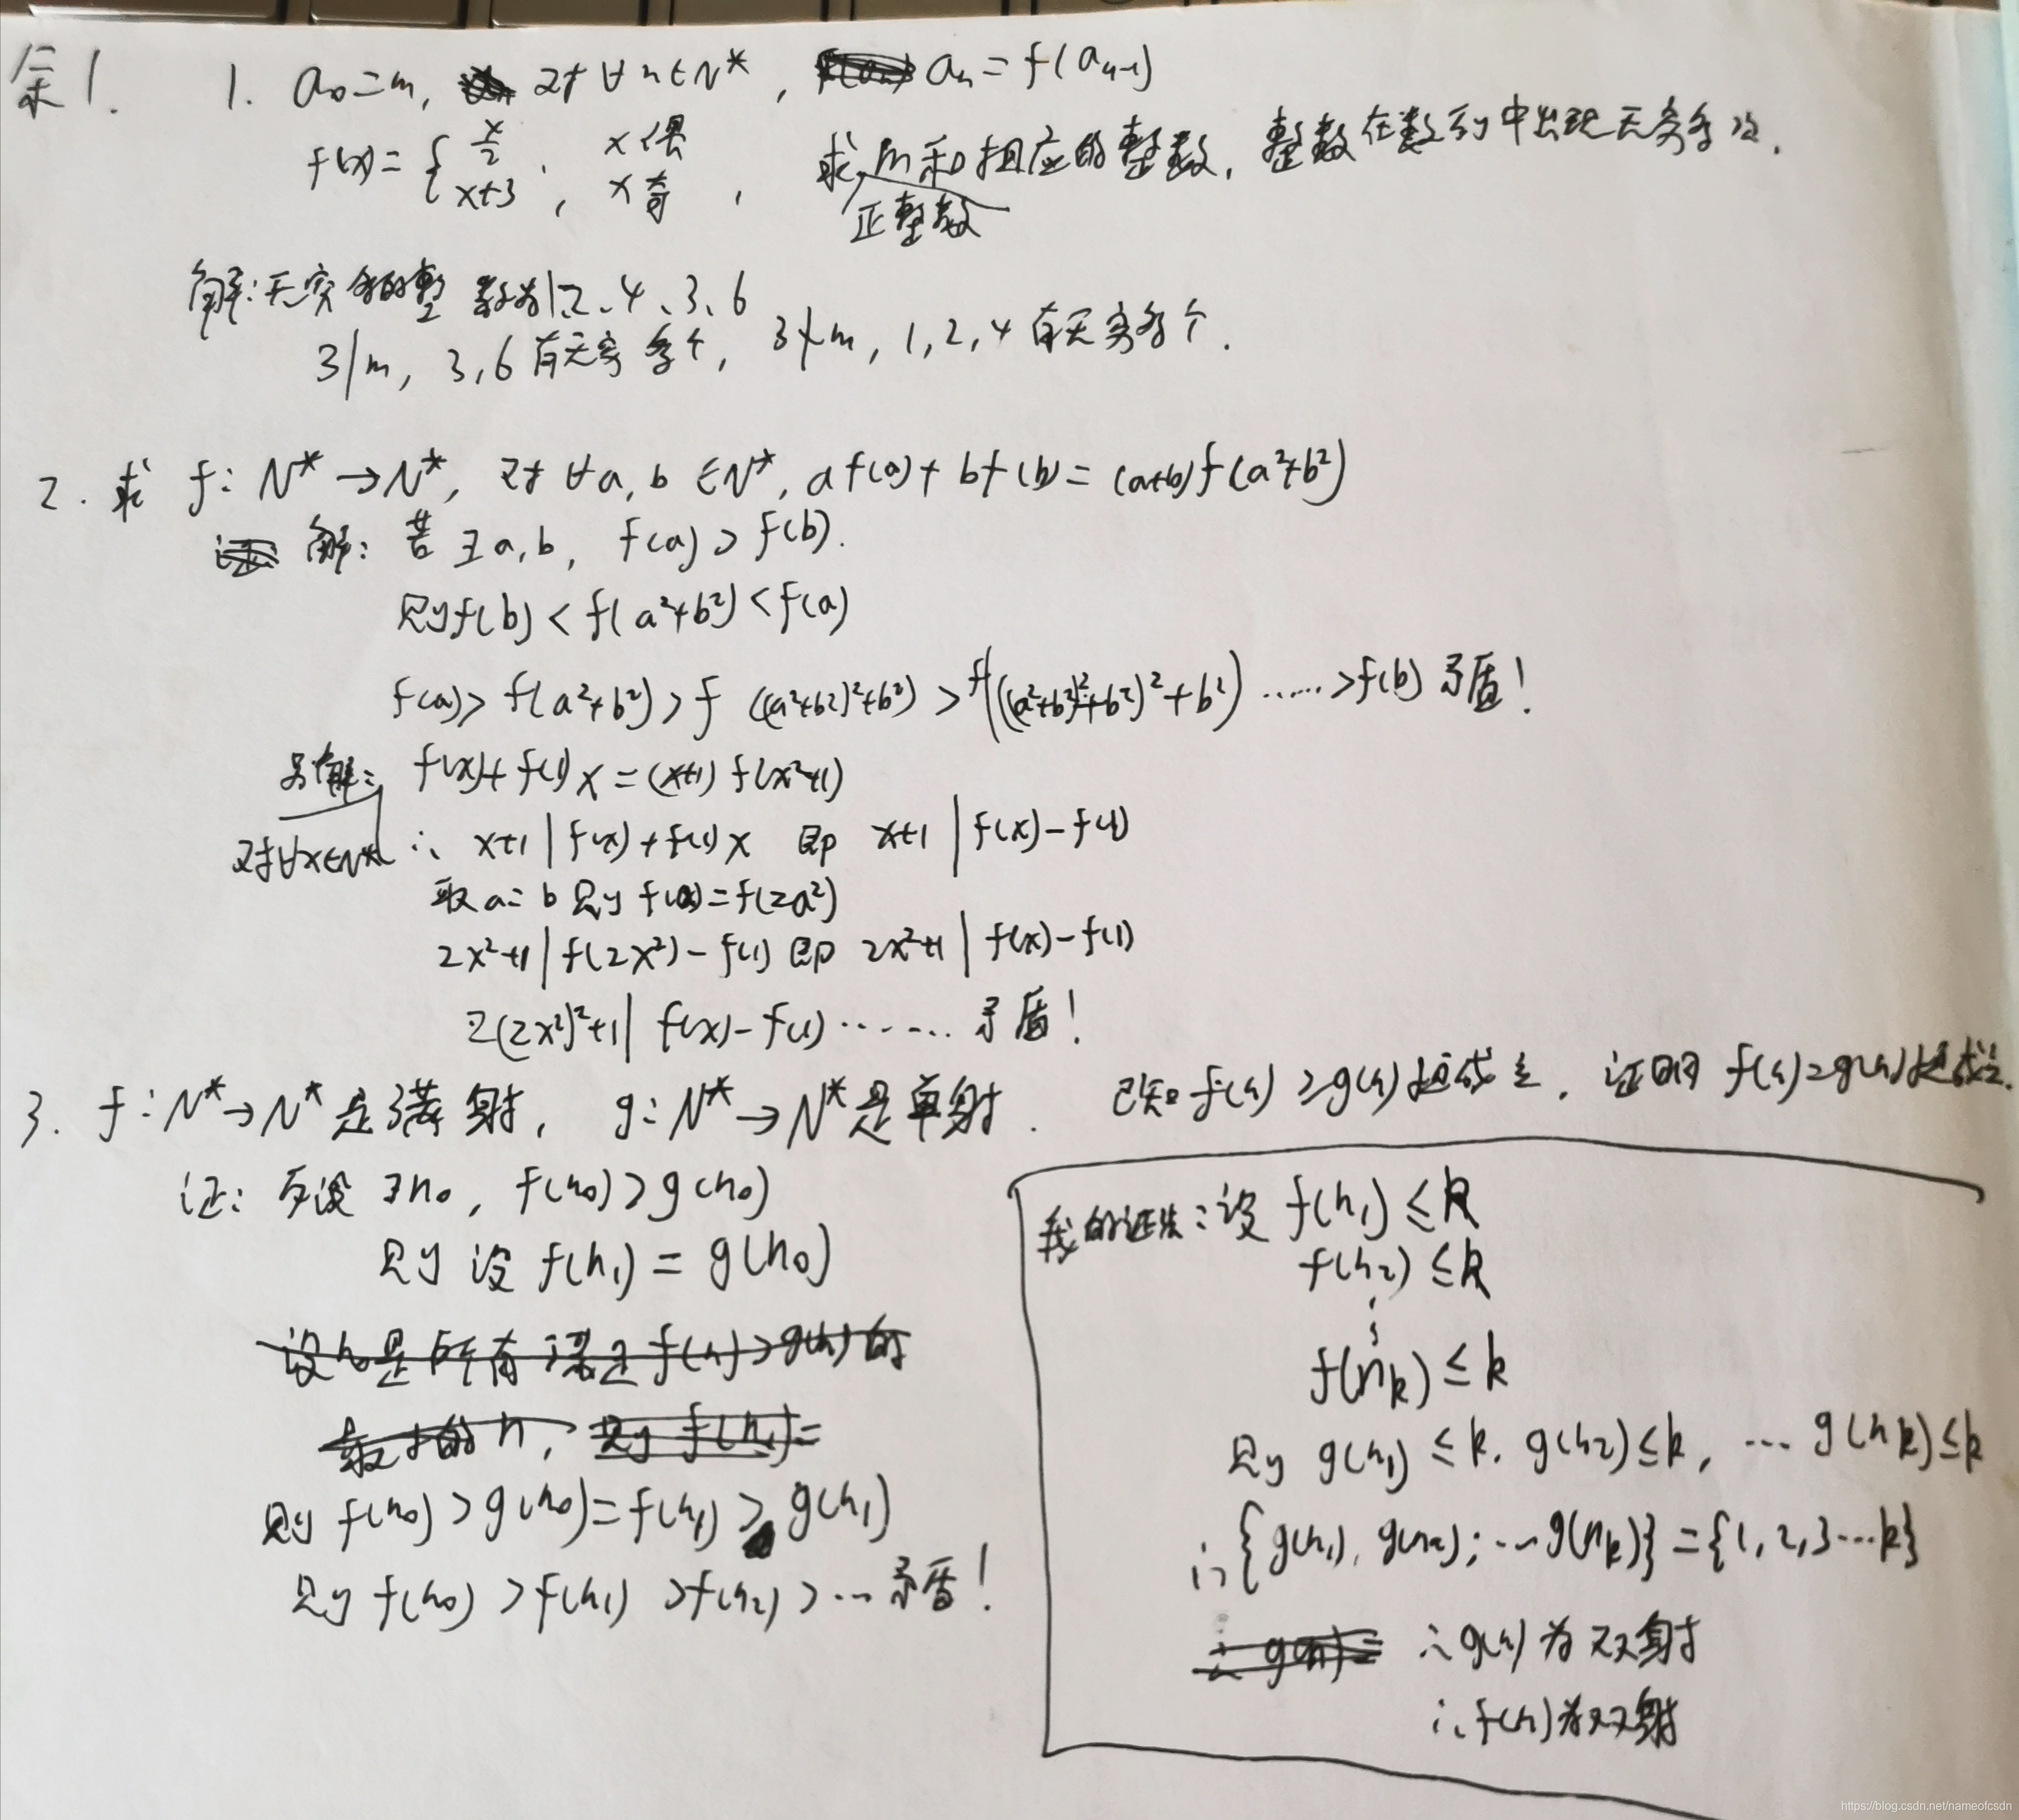 余1. 1. a₀=m, 对∀n∈N*, aₙ=f(aₙ₋₁)
f(x)={x/2, x偶
x+3, x奇, 求m和相应的整数, 整数在数列中出现无穷多次.
正整数
解:无穷多的整数为1、2、4、3、6
3|m, 3,6有无穷多个, 3∤m, 1,2,4有无穷多个.
2. 求 f: N*→N*, 对∀a, b∈N*, af(a)+bf(b)=(a+b)f(a²+b²)
解: 若∃a,b, f(a)>f(b).
则f(b)<f(a²+b²)<f(a)
f(a)>f(a²+b²)>f((a²+b²)²+b²)>f(((a²+b²)²+b²)²+b²)……>f(b) 矛盾!
另解: f(x)+f(1)x=(x+1)f(x²+1)
对∀x∈N* ∴ x+1|f(x)+f(1)x 即 x+1|f(x)-f(1)
取a=b则f(a)=f(2a²)
2x²+1|f(2x²)-f(1) 即 2x²+1|f(x)-f(1)
2(2x²)²+1|f(x)-f(1)……矛盾!
3. f: N*→N*是满射, g: N*→N*是单射. 已知f(n)≥g(n)恒成立, 证明f(n)=g(n)恒成立.
证: 反设∃n₀, f(n₀)>g(n₀)
则设f(n₁)=g(n₀)
设n是所有满足f(n)>g(n)的
最小的n, 则f(n₁)=
则f(n₀)>g(n₀)=f(n₁)≥g(n₁)
则f(n₀)>f(n₁)>f(n₂)>…矛盾!
我的证法:设f(n₁)≤k
f(n₂)≤k
⋮
f(nₖ)≤k
则g(n₁)≤k, g(n₂)≤k, …g(nₖ)≤k
∴{g(n₁), g(n₂), …g(nₖ)}={1,2,3…k}
∴g(n)= ∴g(n)为双射
∴f(n)为双射
https://blog.csdn.net/nameofcsdn